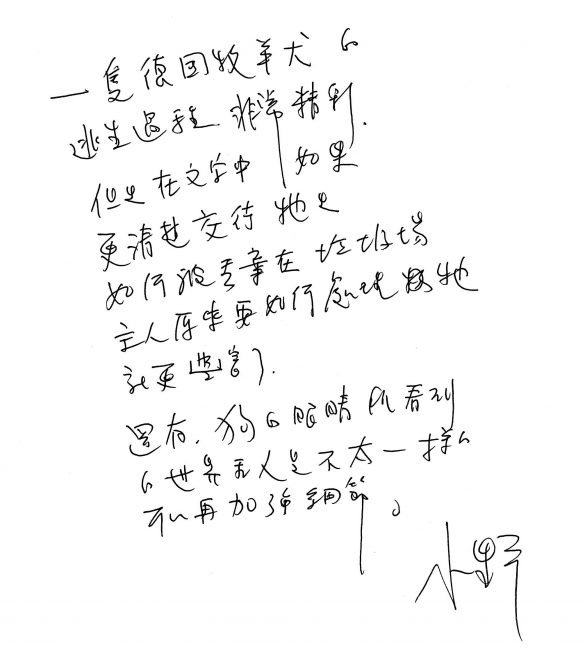 一隻德国牧羊犬的
逃生過程.非常精彩.
但是在文字中如果
更清楚交待牠是
如何被丟棄在垃圾場
主人原來要如何處理掉牠
就更豐富了.
還有.狗的眼睛所看到
的世界和人是不太一樣的
可以再加強細節。
小野